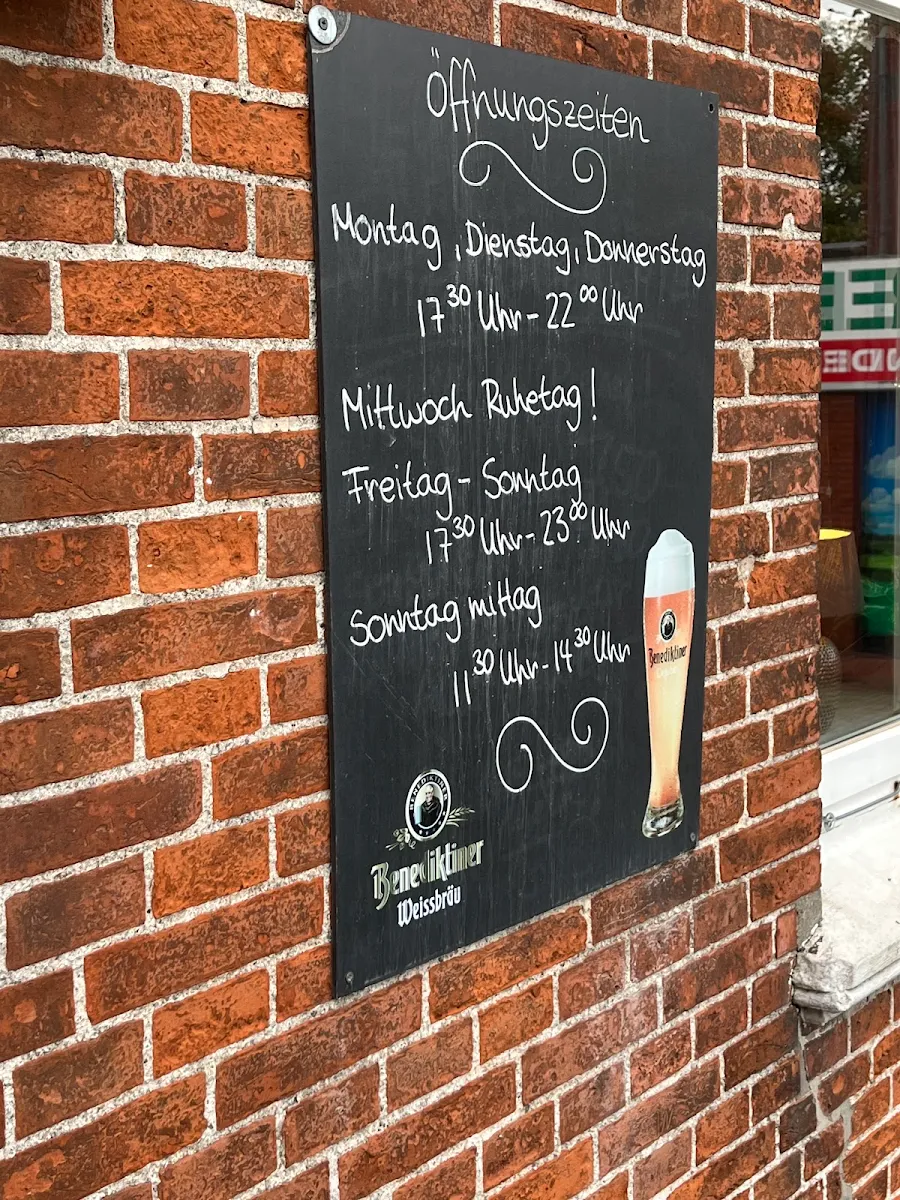 Öffnungszeiten
Montag, Dienstag, Donnerstag
17³⁰ Uhr - 22⁰⁰ Uhr
Mittwoch Ruhetag!
Freitag - Sonntag
17³⁰ Uhr - 23⁰⁰ Uhr
Sonntag mittag
11³⁰ Uhr - 14³⁰ Uhr
Benediktiner
BENEDIKTINER
Benediktiner
Weissbräu